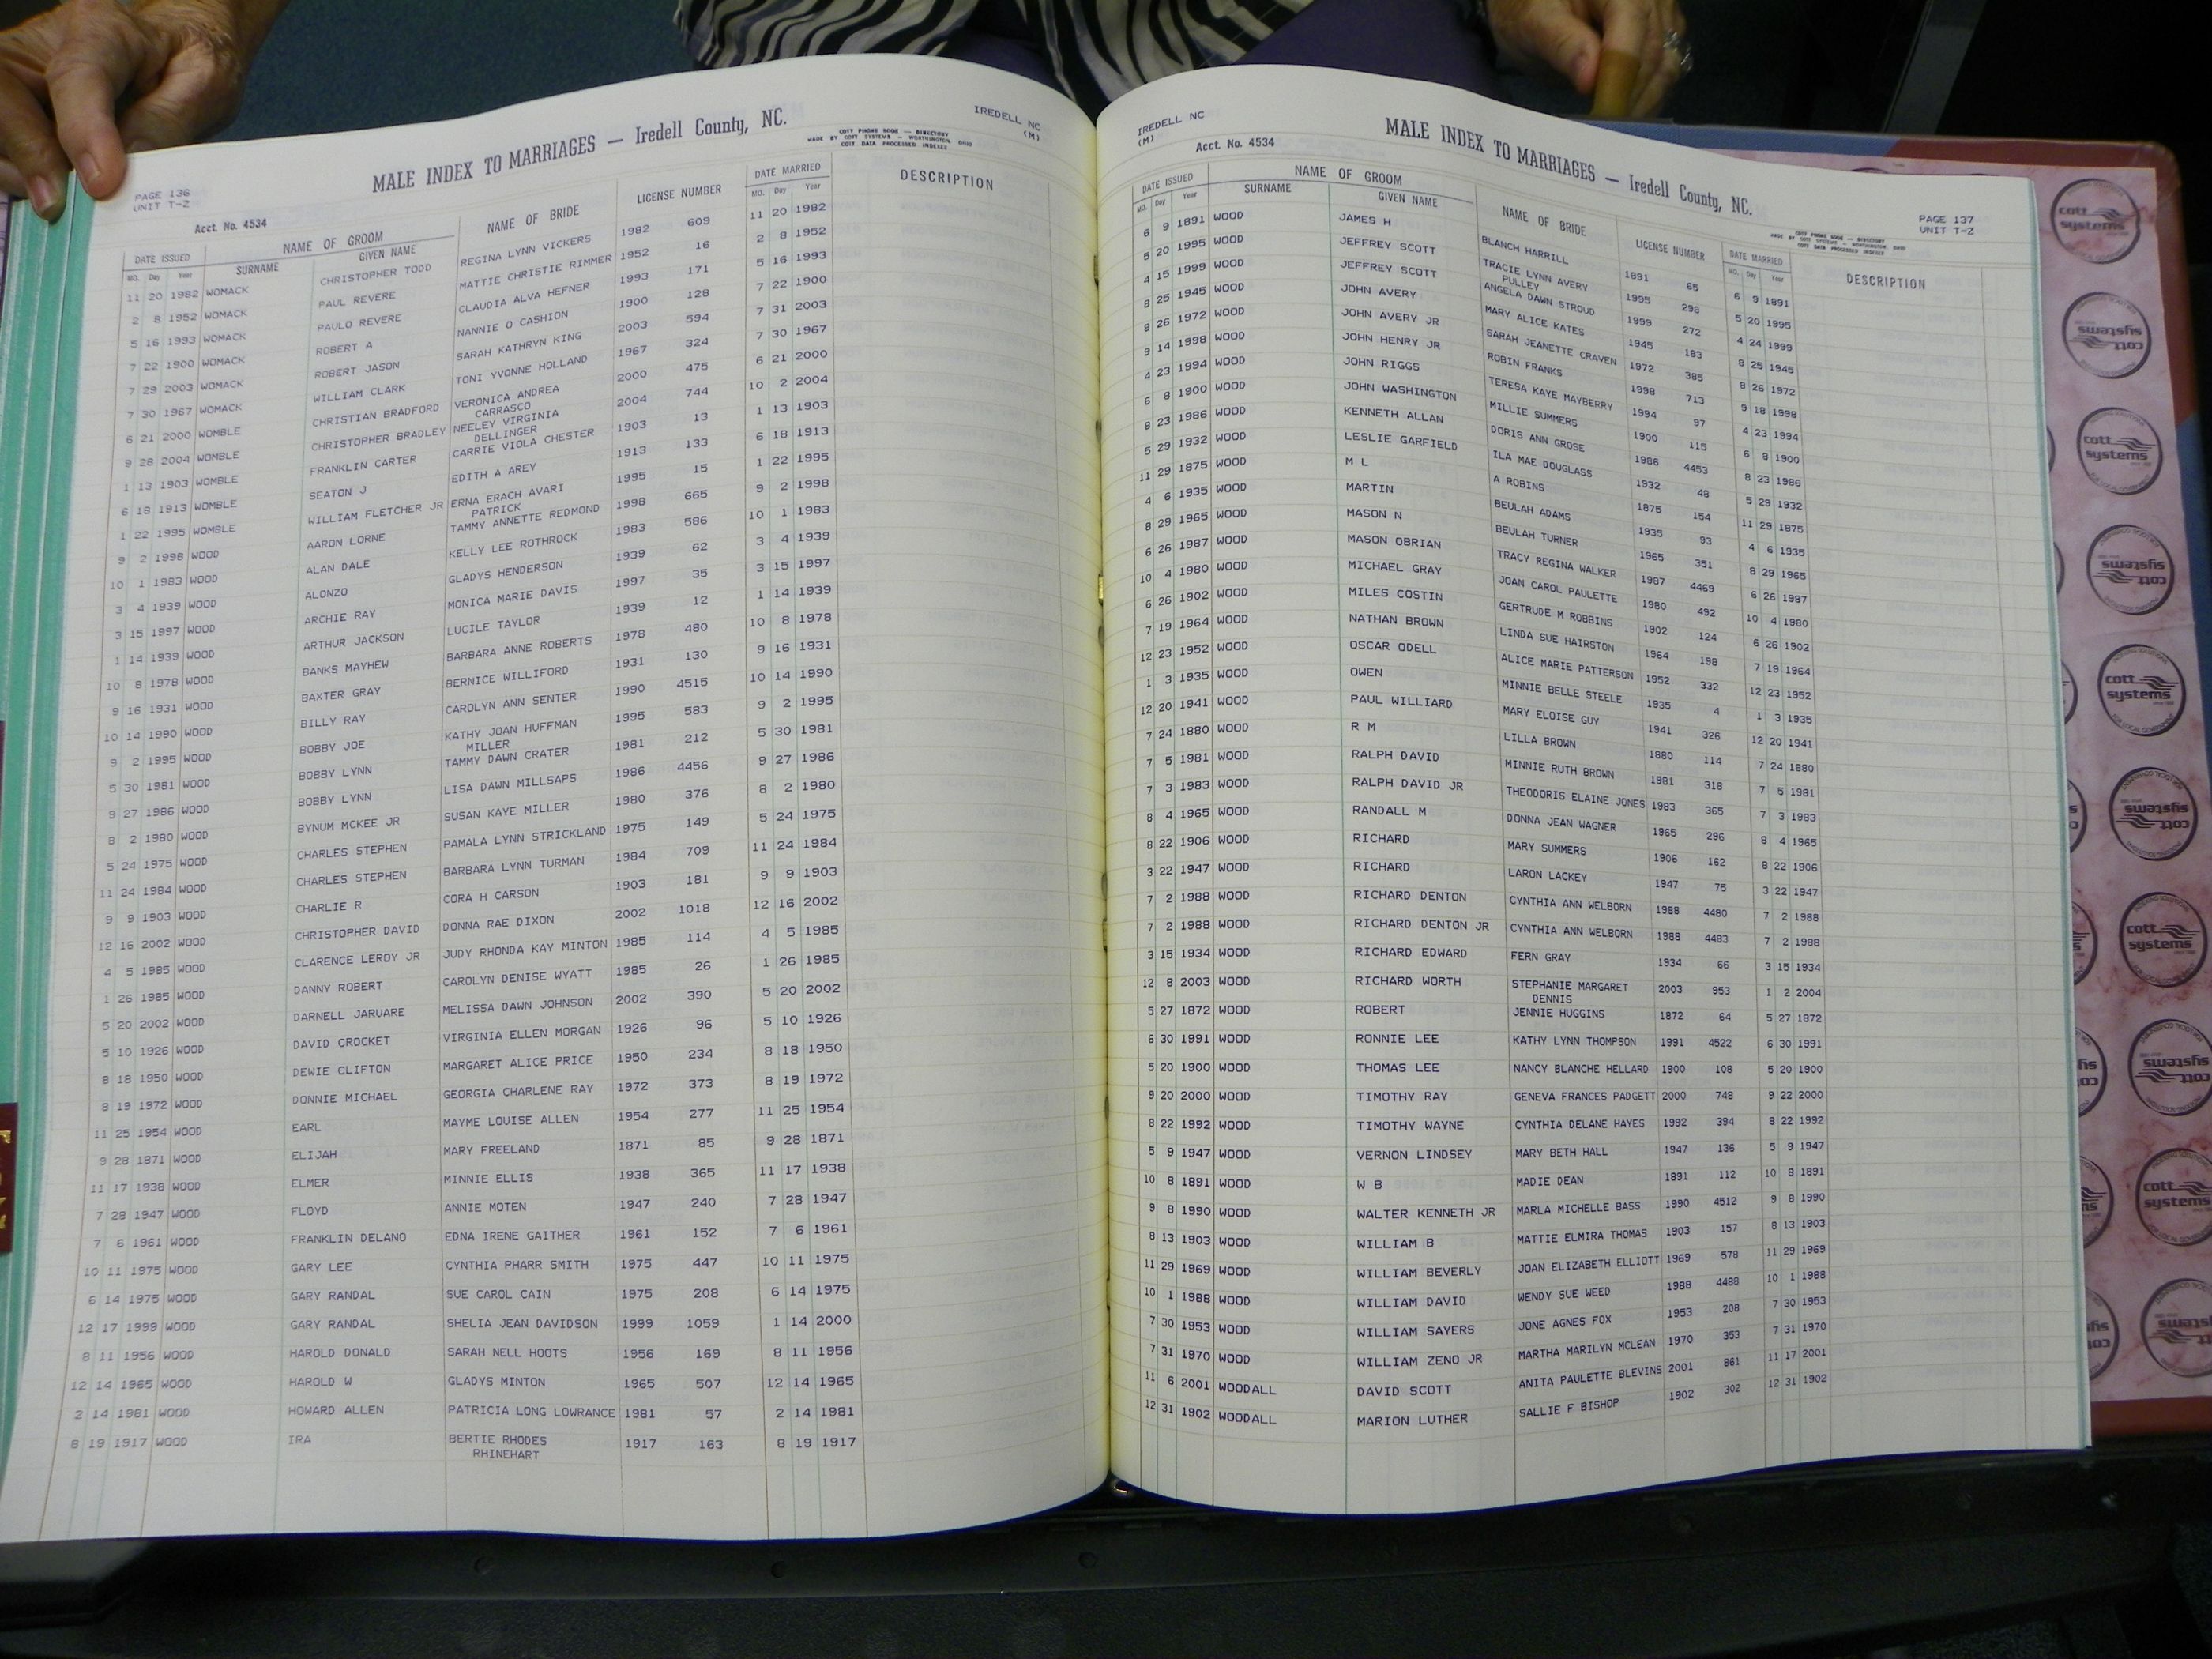 PAGE 136
UNIT T-Z
MALE INDEX TO MARRIAGES — Iredell County, NC.
COTT PHONE BOOK — DIRECTORY
MADE BY COTT SYSTEMS — WORTHINGTON OHIO
COTT DATA PROCESSED INDEXES
IREDELL NC
(M)
Acct. No. 4534
DATE ISSUED NAME OF GROOM NAME OF BRIDE LICENSE NUMBER DATE MARRIED DESCRIPTION
MO. Day Year SURNAME GIVEN NAME MO. Day Year
11 20 1982 WOMACK CHRISTOPHER TODD REGINA LYNN VICKERS 1982 609 11 20 1982
2 8 1952 WOMACK PAUL REVERE MATTIE CHRISTIE RIMMER 1952 16 2 8 1952
5 16 1993 WOMACK PAULO REVERE CLAUDIA ALVA HEFNER 1993 171 5 16 1993
7 22 1900 WOMACK ROBERT A NANNIE O CASHION 1900 128 7 22 1900
7 29 2003 WOMACK ROBERT JASON SARAH KATHRYN KING 2003 594 7 31 2003
7 30 1967 WOMACK WILLIAM CLARK TONI YVONNE HOLLAND 1967 324 7 30 1967
6 21 2000 WOMBLE CHRISTIAN BRADFORD VERONICA ANDREA 2000 475 6 21 2000
CARRASCO
9 28 2004 WOMBLE CHRISTOPHER BRADLEY NEELEY VIRGINIA 2004 744 10 2 2004
DELLINGER
1 13 1903 WOMBLE FRANKLIN CARTER CARRIE VIOLA CHESTER 1903 13 1 13 1903
6 18 1913 WOMBLE SEATON J EDITH A AREY 1913 133 6 18 1913
1 22 1995 WOMBLE WILLIAM FLETCHER JR ERNA ERACH AVARI 1995 15 1 22 1995
PATRICK
9 2 1998 WOOD AARON LORNE TAMMY ANNETTE REDMOND 1998 665 9 2 1998
10 1 1983 WOOD ALAN DALE KELLY LEE ROTHROCK 1983 586 10 1 1983
3 4 1939 WOOD ALONZO GLADYS HENDERSON 1939 62 3 4 1939
3 15 1997 WOOD ARCHIE RAY MONICA MARIE DAVIS 1997 35 3 15 1997
1 14 1939 WOOD ARTHUR JACKSON LUCILE TAYLOR 1939 12 1 14 1939
10 8 1978 WOOD BANKS MAYHEW BARBARA ANNE ROBERTS 1978 480 10 8 1978
9 16 1931 WOOD BAXTER GRAY BERNICE WILLIFORD 1931 130 9 16 1931
10 14 1990 WOOD BILLY RAY CAROLYN ANN SENTER 1990 4515 10 14 1990
9 2 1995 WOOD BOBBY JOE KATHY JOAN HUFFMAN 1995 583 9 2 1995
MILLER
5 30 1981 WOOD BOBBY LYNN TAMMY DAWN CRATER 1981 212 5 30 1981
9 27 1986 WOOD BOBBY LYNN LISA DAWN MILLSAPS 1986 4456 9 27 1986
8 2 1980 WOOD BYNUM MCKEE JR SUSAN KAYE MILLER 1980 376 8 2 1980
5 24 1975 WOOD CHARLES STEPHEN PAMALA LYNN STRICKLAND 1975 149 5 24 1975
11 24 1984 WOOD CHARLES STEPHEN BARBARA LYNN TURMAN 1984 709 11 24 1984
9 9 1903 WOOD CHARLIE R CORA H CARSON 1903 181 9 9 1903
12 16 2002 WOOD CHRISTOPHER DAVID DONNA RAE DIXON 2002 1018 12 16 2002
4 5 1985 WOOD CLARENCE LEROY JR JUDY RHONDA KAY MINTON 1985 114 4 5 1985
1 26 1985 WOOD DANNY ROBERT CAROLYN DENISE WYATT 1985 26 1 26 1985
5 20 2002 WOOD DARNELL JARUARE MELISSA DAWN JOHNSON 2002 390 5 20 2002
5 10 1926 WOOD DAVID CROCKET VIRGINIA ELLEN MORGAN 1926 96 5 10 1926
8 18 1950 WOOD DEWIE CLIFTON MARGARET ALICE PRICE 1950 234 8 18 1950
8 19 1972 WOOD DONNIE MICHAEL GEORGIA CHARLENE RAY 1972 373 8 19 1972
11 25 1954 WOOD EARL MAYME LOUISE ALLEN 1954 277 11 25 1954
9 28 1871 WOOD ELIJAH MARY FREELAND 1871 85 9 28 1871
11 17 1938 WOOD ELMER MINNIE ELLIS 1938 365 11 17 1938
7 28 1947 WOOD FLOYD ANNIE MOTEN 1947 240 7 28 1947
7 6 1961 WOOD FRANKLIN DELANO EDNA IRENE GAITHER 1961 152 7 6 1961
10 11 1975 WOOD GARY LEE CYNTHIA PHARR SMITH 1975 447 10 11 1975
6 14 1975 WOOD GARY RANDAL SUE CAROL CAIN 1975 208 6 14 1975
12 17 1999 WOOD GARY RANDAL SHELIA JEAN DAVIDSON 1999 1059 1 14 2000
8 11 1956 WOOD HAROLD DONALD SARAH NELL HOOTS 1956 169 8 11 1956
12 14 1965 WOOD HAROLD W GLADYS MINTON 1965 507 12 14 1965
2 14 1981 WOOD HOWARD ALLEN PATRICIA LONG LOWRANCE 1981 57 2 14 1981
8 19 1917 WOOD IRA BERTIE RHODES 1917 163 8 19 1917
RHINEHART
IREDELL NC
(M)
Acct. No. 4534
MALE INDEX TO MARRIAGES — Iredell County, NC.
PAGE 137
UNIT T-Z
COTT PHONE BOOK — DIRECTORY
MADE BY COTT SYSTEMS — WORTHINGTON OHIO
COTT DATA PROCESSED INDEXES
DATE ISSUED NAME OF GROOM NAME OF BRIDE LICENSE NUMBER DATE MARRIED DESCRIPTION
MO. Day Year SURNAME GIVEN NAME MO. Day Year
6 9 1891 WOOD JAMES H BLANCH HARRILL 1891 65 6 9 1891
5 20 1995 WOOD JEFFREY SCOTT TRACIE LYNN AVERY 1995 298 5 20 1995
PULLEY
4 15 1999 WOOD JEFFREY SCOTT ANGELA DAWN STROUD 1999 272 4 24 1999
8 25 1945 WOOD JOHN AVERY MARY ALICE KATES 1945 183 8 25 1945
8 26 1972 WOOD JOHN AVERY JR SARAH JEANETTE CRAVEN 1972 385 8 26 1972
9 14 1998 WOOD JOHN HENRY JR ROBIN FRANKS 1998 713 9 18 1998
4 23 1994 WOOD JOHN RIGGS TERESA KAYE MAYBERRY 1994 97 4 23 1994
6 8 1900 WOOD JOHN WASHINGTON MILLIE SUMMERS 1900 115 6 8 1900
8 23 1986 WOOD KENNETH ALLAN DORIS ANN GROSE 1986 4453 8 23 1986
5 29 1932 WOOD LESLIE GARFIELD ILA MAE DOUGLASS 1932 48 5 29 1932
11 29 1875 WOOD M L A ROBINS 1875 154 11 29 1875
4 6 1935 WOOD MARTIN BEULAH ADAMS 1935 93 4 6 1935
8 29 1965 WOOD MASON N BEULAH TURNER 1965 351 8 29 1965
6 26 1987 WOOD MASON OBRIAN TRACY REGINA WALKER 1987 4469 6 26 1987
10 4 1980 WOOD MICHAEL GRAY JOAN CAROL PAULETTE 1980 492 10 4 1980
6 26 1902 WOOD MILES COSTIN GERTRUDE M ROBBINS 1902 124 6 26 1902
7 19 1964 WOOD NATHAN BROWN LINDA SUE HAIRSTON 1964 198 7 19 1964
12 23 1952 WOOD OSCAR ODELL ALICE MARIE PATTERSON 1952 332 12 23 1952
1 3 1935 WOOD OWEN MINNIE BELLE STEELE 1935 4 1 3 1935
12 20 1941 WOOD PAUL WILLIARD MARY ELOISE GUY 1941 326 12 20 1941
7 24 1880 WOOD R M LILLA BROWN 1880 114 7 24 1880
7 5 1981 WOOD RALPH DAVID MINNIE RUTH BROWN 1981 318 7 5 1981
7 3 1983 WOOD RALPH DAVID JR THEODORIS ELAINE JONES 1983 365 7 3 1983
8 4 1965 WOOD RANDALL M DONNA JEAN WAGNER 1965 296 8 4 1965
8 22 1906 WOOD RICHARD MARY SUMMERS 1906 162 8 22 1906
3 22 1947 WOOD RICHARD LARON LACKEY 1947 75 3 22 1947
7 2 1988 WOOD RICHARD DENTON CYNTHIA ANN WELBORN 1988 4480 7 2 1988
7 2 1988 WOOD RICHARD DENTON JR CYNTHIA ANN WELBORN 1988 4483 7 2 1988
3 15 1934 WOOD RICHARD EDWARD FERN GRAY 1934 66 3 15 1934
12 8 2003 WOOD RICHARD WORTH STEPHANIE MARGARET 2003 953 1 2 2004
DENNIS
5 27 1872 WOOD ROBERT JENNIE HUGGINS 1872 64 5 27 1872
6 30 1991 WOOD RONNIE LEE KATHY LYNN THOMPSON 1991 4522 6 30 1991
5 20 1900 WOOD THOMAS LEE NANCY BLANCHE HELLARD 1900 108 5 20 1900
9 20 2000 WOOD TIMOTHY RAY GENEVA FRANCES PADGETT 2000 748 9 22 2000
8 22 1992 WOOD TIMOTHY WAYNE CYNTHIA DELANE HAYES 1992 394 8 22 1992
5 9 1947 WOOD VERNON LINDSEY MARY BETH HALL 1947 136 5 9 1947
10 8 1891 WOOD W B MADIE DEAN 1891 112 10 8 1891
9 8 1990 WOOD WALTER KENNETH JR MARLA MICHELLE BASS 1990 4512 9 8 1990
8 13 1903 WOOD WILLIAM B MATTIE ELMIRA THOMAS 1903 157 8 13 1903
11 29 1969 WOOD WILLIAM BEVERLY JOAN ELIZABETH ELLIOTT 1969 578 11 29 1969
10 1 1988 WOOD WILLIAM DAVID WENDY SUE WEED 1988 4488 10 1 1988
7 30 1953 WOOD WILLIAM SAYERS JONE AGNES FOX 1953 208 7 30 1953
7 31 1970 WOOD WILLIAM ZENO JR MARTHA MARILYN MCLEAN 1970 353 7 31 1970
11 6 2001 WOODALL DAVID SCOTT ANITA PAULETTE BLEVINS 2001 861 11 17 2001
12 31 1902 WOODALL MARION LUTHER SALLIE F BISHOP 1902 302 12 31 1902
cott systems
cott systems
cott systems
cott systems
cott systems
cott systems
cott systems
cott systems
cott systems
cott systems